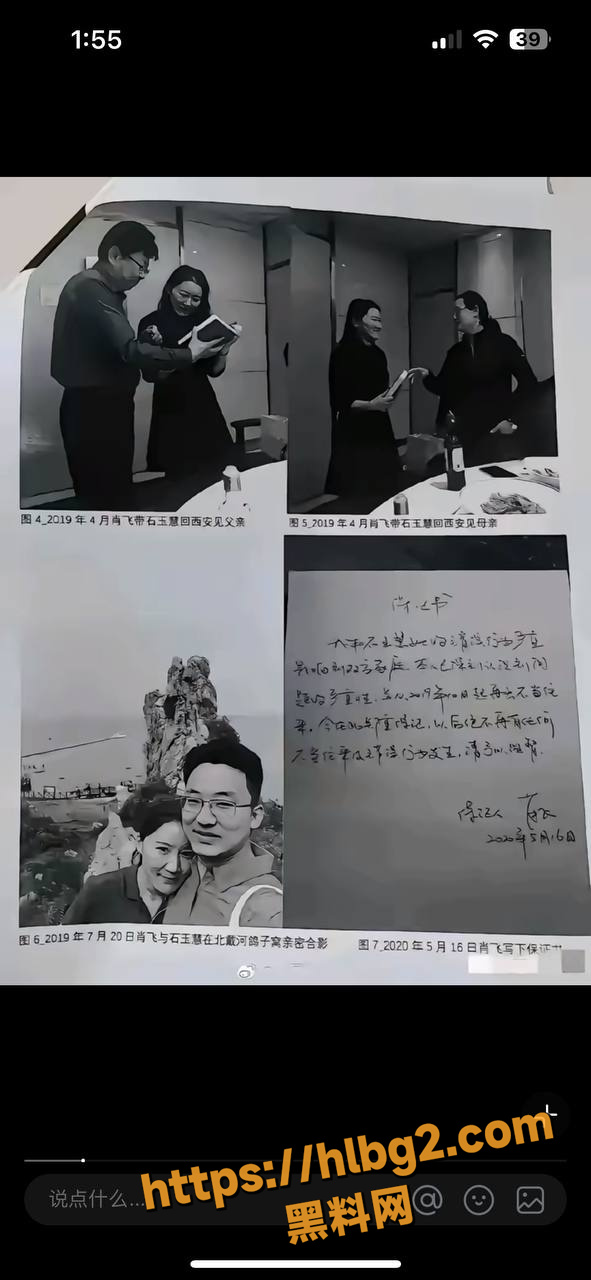 1:55
39
图 4_2019 年 4 月肖飞带石玉慧回西安见父亲
图 5_2019 年 4 月肖飞带石玉慧回西安见母亲
保证书
影响到双方家庭，本人已深刻认识到问
题的严重性，并从2019年10月起再无不当往
来。今在此慎重保证，以后绝不再有任何
保证人 肖飞
2020年5月16日
图 6_2019 年 7 月 20 日肖飞与石玉慧在北戴河鸽子窝亲密合影
图 7_2020 年 5 月 16 日肖飞写下保证书
https://hlbg2.com
说点什么...
黑料网